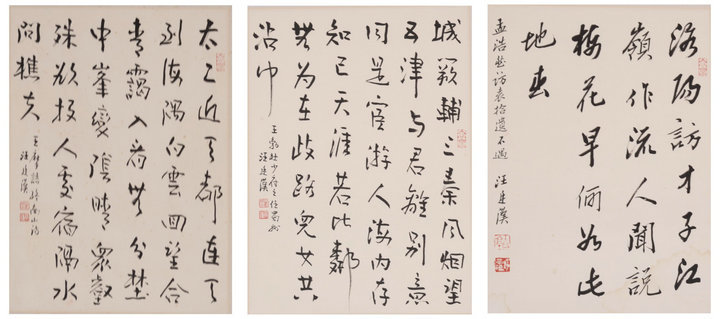 太乙近天都連天
到海隅白雲回望合
青靄入看無分埜
中峯變陰晴衆壑
殊欲投人處宿隔水
問樵夫
王維詩終南山詩
城闕輔三秦風烟望
五津与君離别意
同是宦游人海内存
知己天涯若比鄰
無為在歧路兒女共
沾巾
王勃杜少府之任蜀州
洛陽訪才子江
嶺作流人聞説
梅花早何如此
地春
孟浩然訪袁拾遺不遇